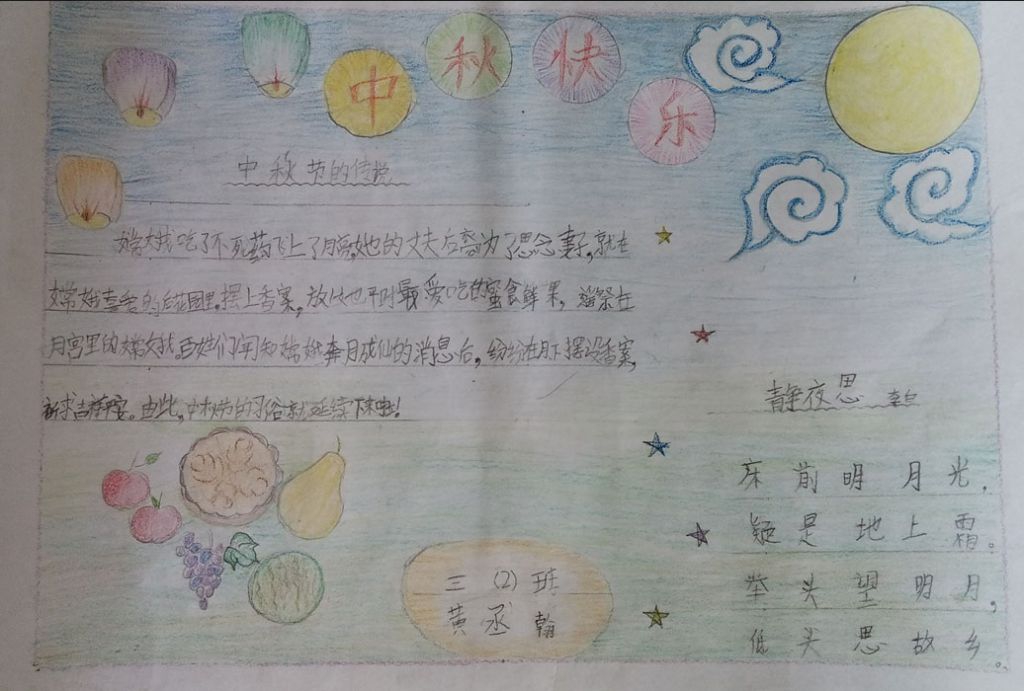 中秋快乐
中秋节的传说
嫦娥吃了不死药飞上了月宫,她的丈夫后羿为了思念妻子,就在
嫦娥喜爱的后花园里,摆上香案,放上她平时最爱吃的蜜食鲜果,遥祭在
月宫里的嫦娥,百姓们闻知嫦娥奔月成仙的消息后,纷纷在月下摆设香案,
祈求吉祥平安。由此,中秋节的习俗就延续下来啦!
静夜思 李白
床前明月光,
疑是地上霜。
举头望明月,
低头思故乡。
三(2)班
黄丞翰